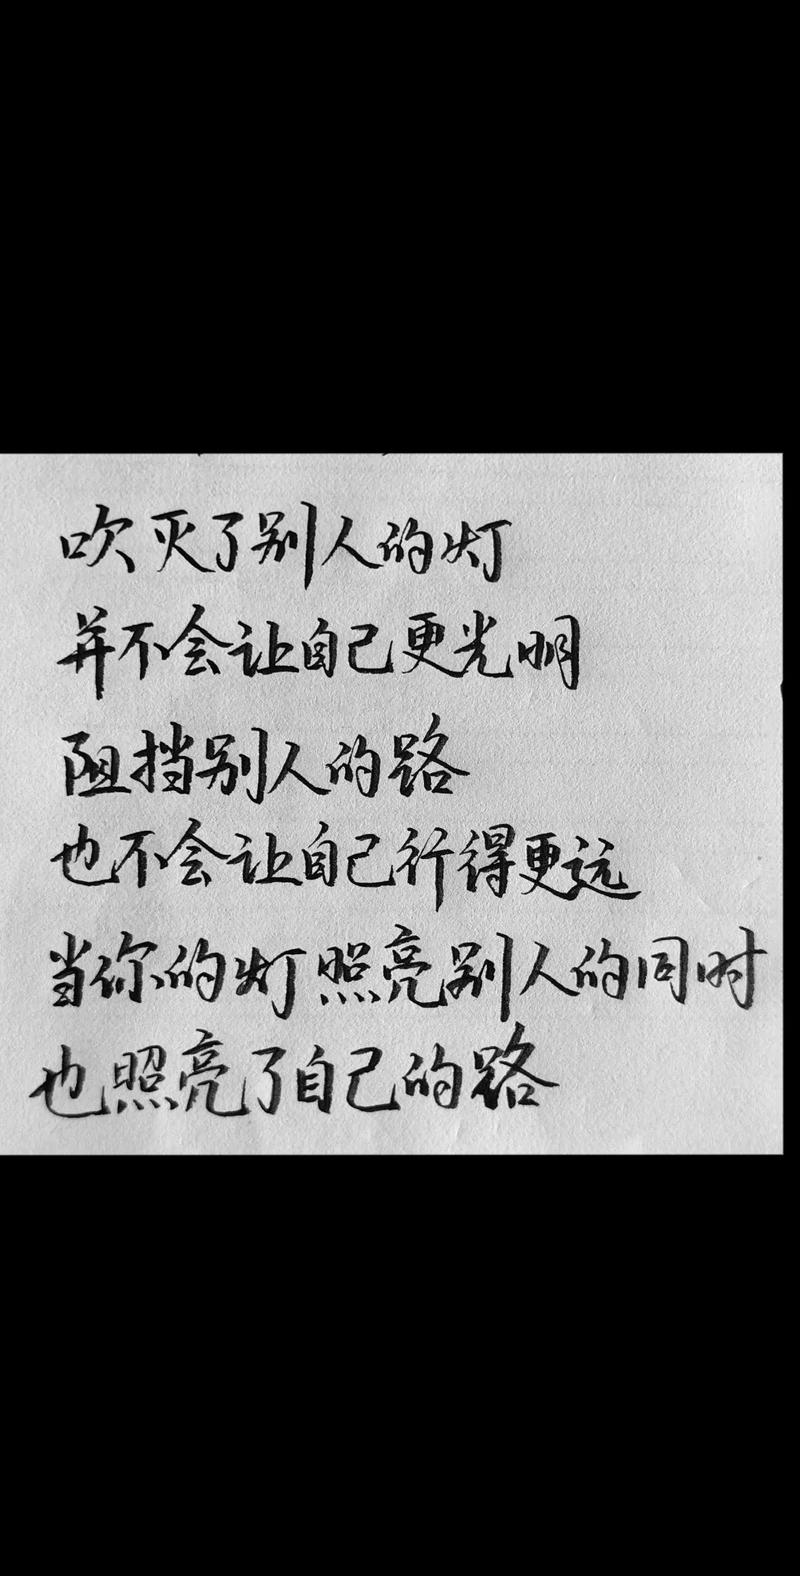 吹灭了别人的灯
并不会让自己更光明
阻挡别人的路
也不会让自己行得更远
当你的灯照亮别人的同时
也照亮了自己的路